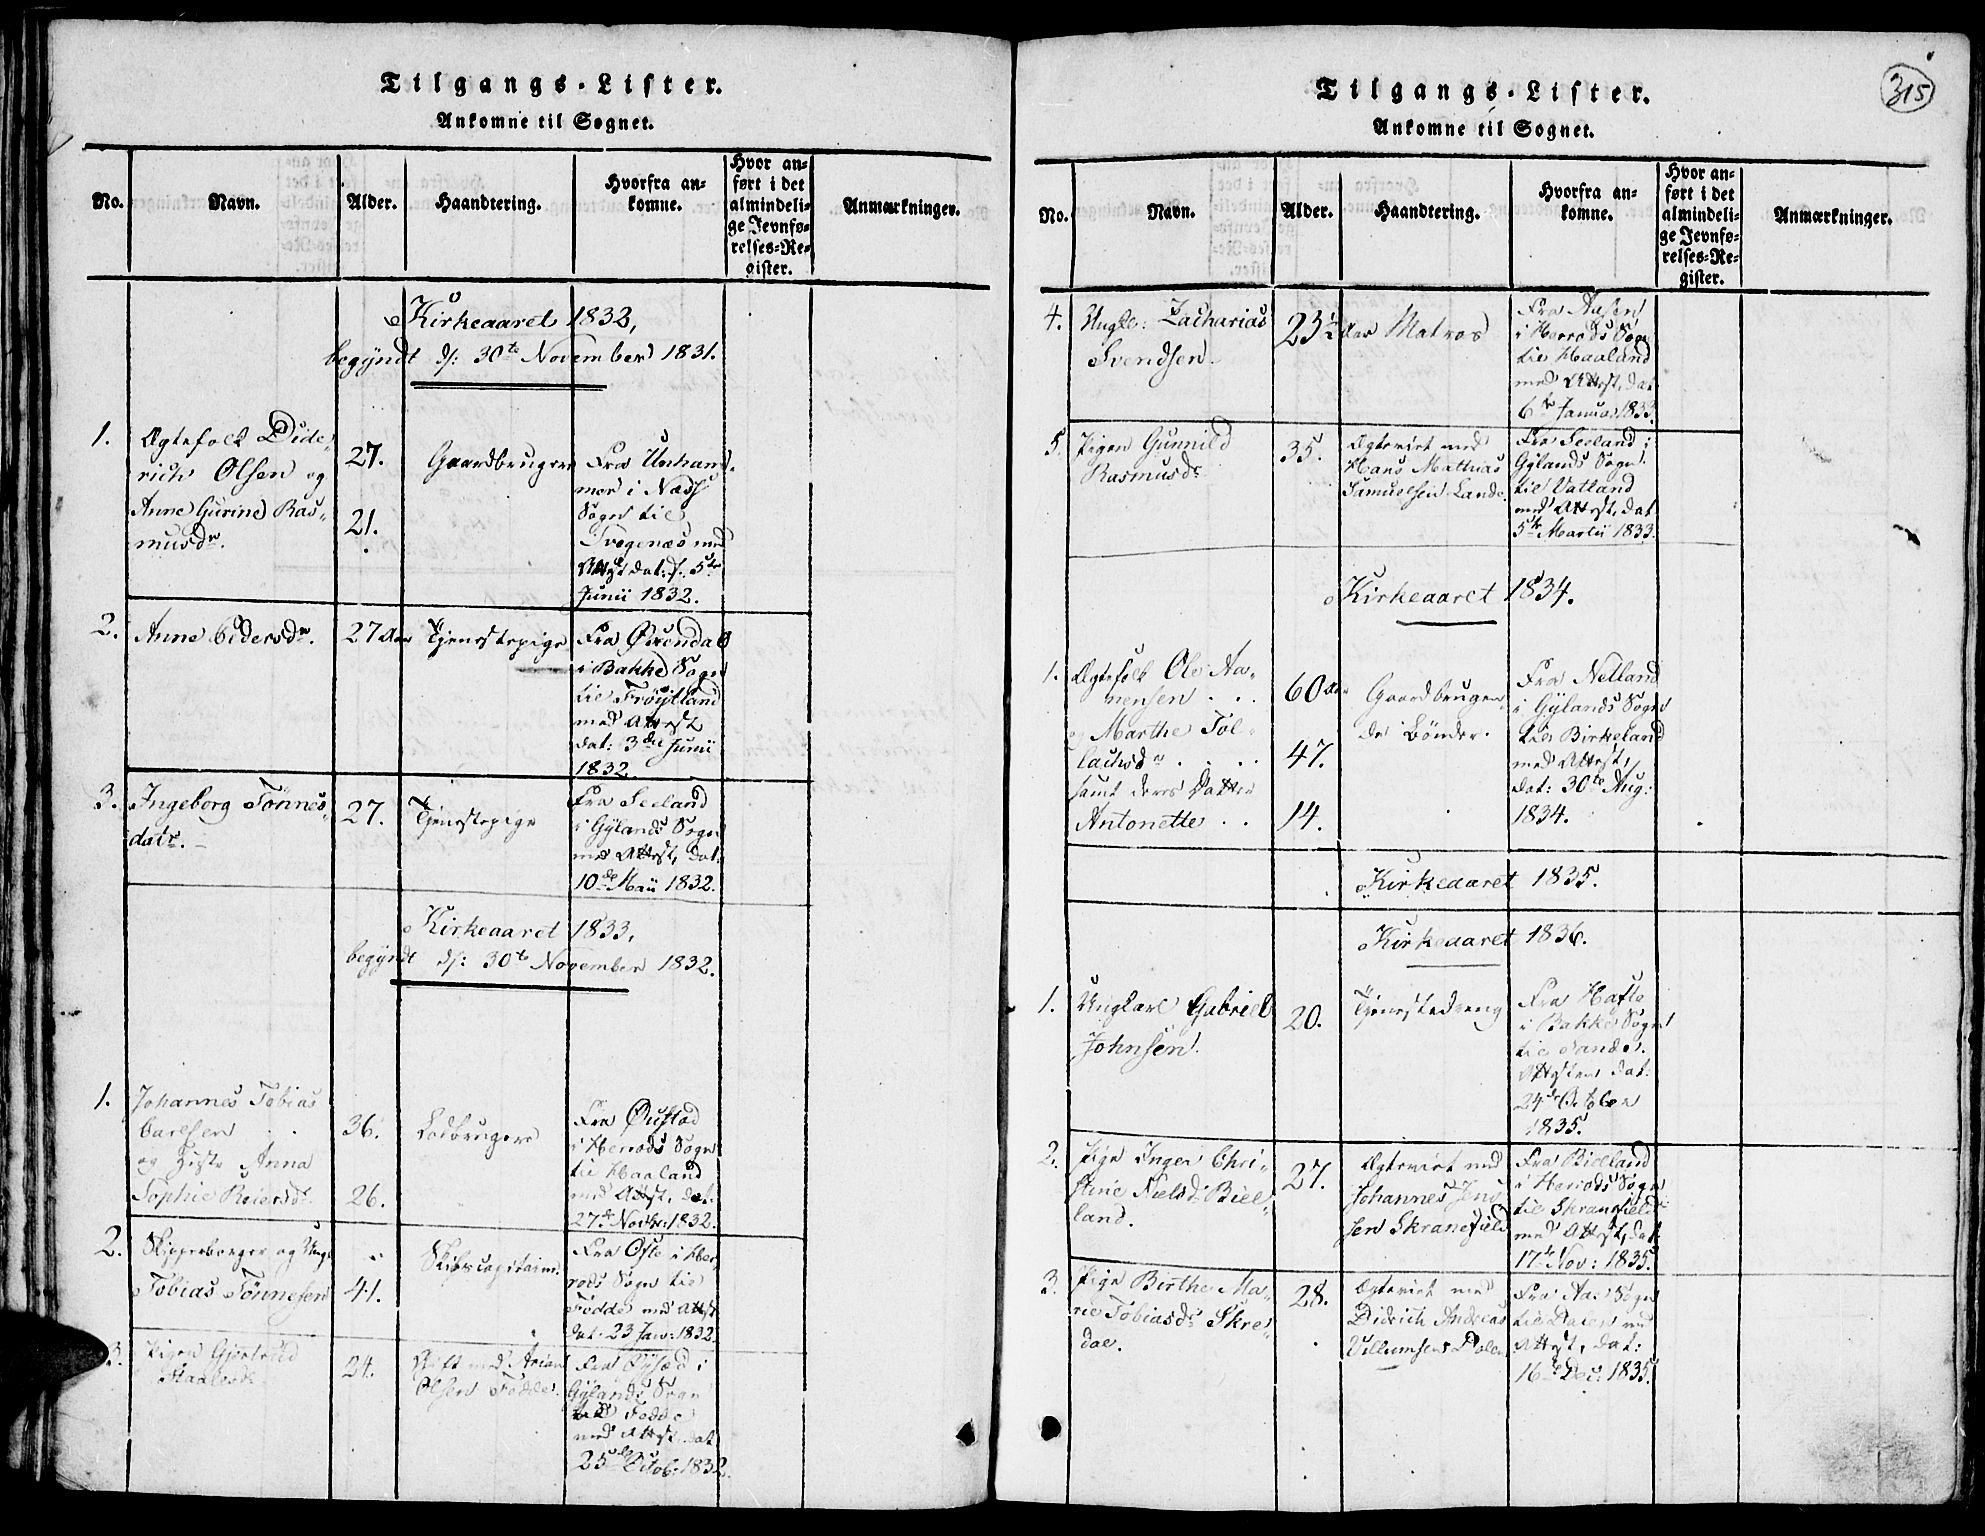 Tilgangs-Lister.
Ankomne til Sognet.
No.
Navn.
Alder.
Haandtering.
Hvorfra an-
komne.
Hvor an-
ført i det
almindeli-
ge Jevnfø-
relses-Re-
gister.
Anmærkninger.
Kirkeaaret 1832,
begyndt d: 30te November 1831.
1.
Ægtefolk Dide-
rich Olsen og
Anne Gurine Ras-
musdr.
27.
21.
Gaardbruger
Fra Unham-
mer i Næss
Sogn til
med
Attest dat: d. 5te
Junii 1832.
2.
Anne Pedersdr.
27 Aar
Tjenestepige
Fra Øxendal
i Bakke Sogn
til Fröytland
med Attest
dat: 3die Junii
1832.
3.
Ingeborg Tönnes-
datr.
27.
Tjenestepige
Fra Seeland
i Gylands Sogn
med Attest, dat:
10de Maii 1832.
Kirkeaaret 1833,
begyndt d: 30te November 1832.
1.
Johannes Tobias
Carlsen
og Anna
Sophie Reiersdr.
36.
26.
Fra
i Herrods Sogn
til Haaland
med Attest, dat:
27de Novbr: 1832.
2.
og
Tobias Tönnesen
41.
Skibscapitain.
Fra Oste i Her-
rods Sogn til
Födde med Attst
dat. 23 Jan: 1832.
3.
Pigen Gjertrud
24.
Gift med Arian
Olsen Födde.
Fra i
Gylands Sogn
til Fedde
med Attest, dat
25de Octob: 1832.
Tilgangs-Lister.
Ankomne til Sognet.
315
No.
Navn.
Alder.
Haandtering.
Hvorfra an-
komne.
Hvor an-
ført i det
almindeli-
ge Jevnfø-
relses-Re-
gister.
Anmærkninger.
4.
Ungk: Zacharias
Svendsen.
23½ Aar
Matros
Fra Aasen
i Herrods Sogn
til Haaland
med Attest, dat
6te Januar 1833.
5.
Pigen Gunnild
Rasmusdr
35.
Ægteviet med
Hans Mathias
Samuelsen Lande.
Fra Seeland i
Gylands Sogn
til Vatland
med Attest, dat
5te Martii 1833.
Kirkeaaret 1834.
1.
Ægtefolk Ole Aa-
nensen . .
og Marthe Tol-
lachsdr . . .
samt deres Datter
Antonette . .
60 Aar
47.
14.
Gaardbrugen-
de Bönder.
Fra Netland
i Gylands Sogn
til Birkeland
med Attest,
dat: 30te Aug:
1834.
Kirkeaaret 1835.
Kirkeaaret 1836.
1.
Ungkarl Gabriel
Johnsen.
20.
Tjenestedreng
Fra
i Bakke Sogn
til Sande.
Attesten dat:
24de October
1835.
2.
Pige Inger Chri-
stine Nielsdr Biel-
land.
27.
Ægteviet med
Johannes Jens-
sen Skranefield
Fra Bielland
i Herrods Sogn
til Skranefield
med Attest, dat.
17de Nov: 1835.
3.
Pige Birthe Ma-
rie Tobiasdr Skre-
dal.
28.
Ægteviet med
Didrich Andreas
Villumsen Dalen
Fra Aae Sogn
til Dalen med
Attest, dat:
16de Dec: 1835.